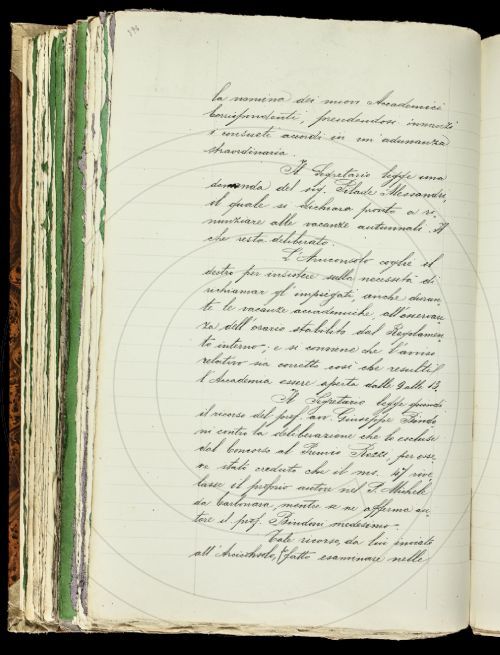 la nomina dei nuovi Accademici
Corrispondenti, prendendosi innanzi
i consueti accordi in un'adunanza
straordinaria.
Il Segretario legge una
domanda del sig. Pilade Alessandri,
il quale si dichiara pronto a ri-
nunziare alle vacanze autunnali. Il
che resta deliberato.
L'Arciconsolo coglie il
destro per insistere sulla necessità di
richiamar gl'impiegati, anche duran-
te le vacanze accademiche, all'osservan-
za dell'orario stabilito dal Regolamen-
to interno, e si conviene che l'avviso
relativo sia corretto così che resulti
l'Accademia essere aperta dalle 9 alle
Il Segretario legge quindi
il ricorso del prof. avv. Giuseppe
ni contro la deliberazione che lo escluse
dal Concorso al Premio Rezzi, per esse-
re stati creduto che il ms. 47 rive-
lasse il proprio autore nel P.
da Carbonara, mentre se ne afferma au-
tore il prof. medesimo.
Tale ricorso, da lui inviato
all'Arciconsolo, fatto esaminare nelle